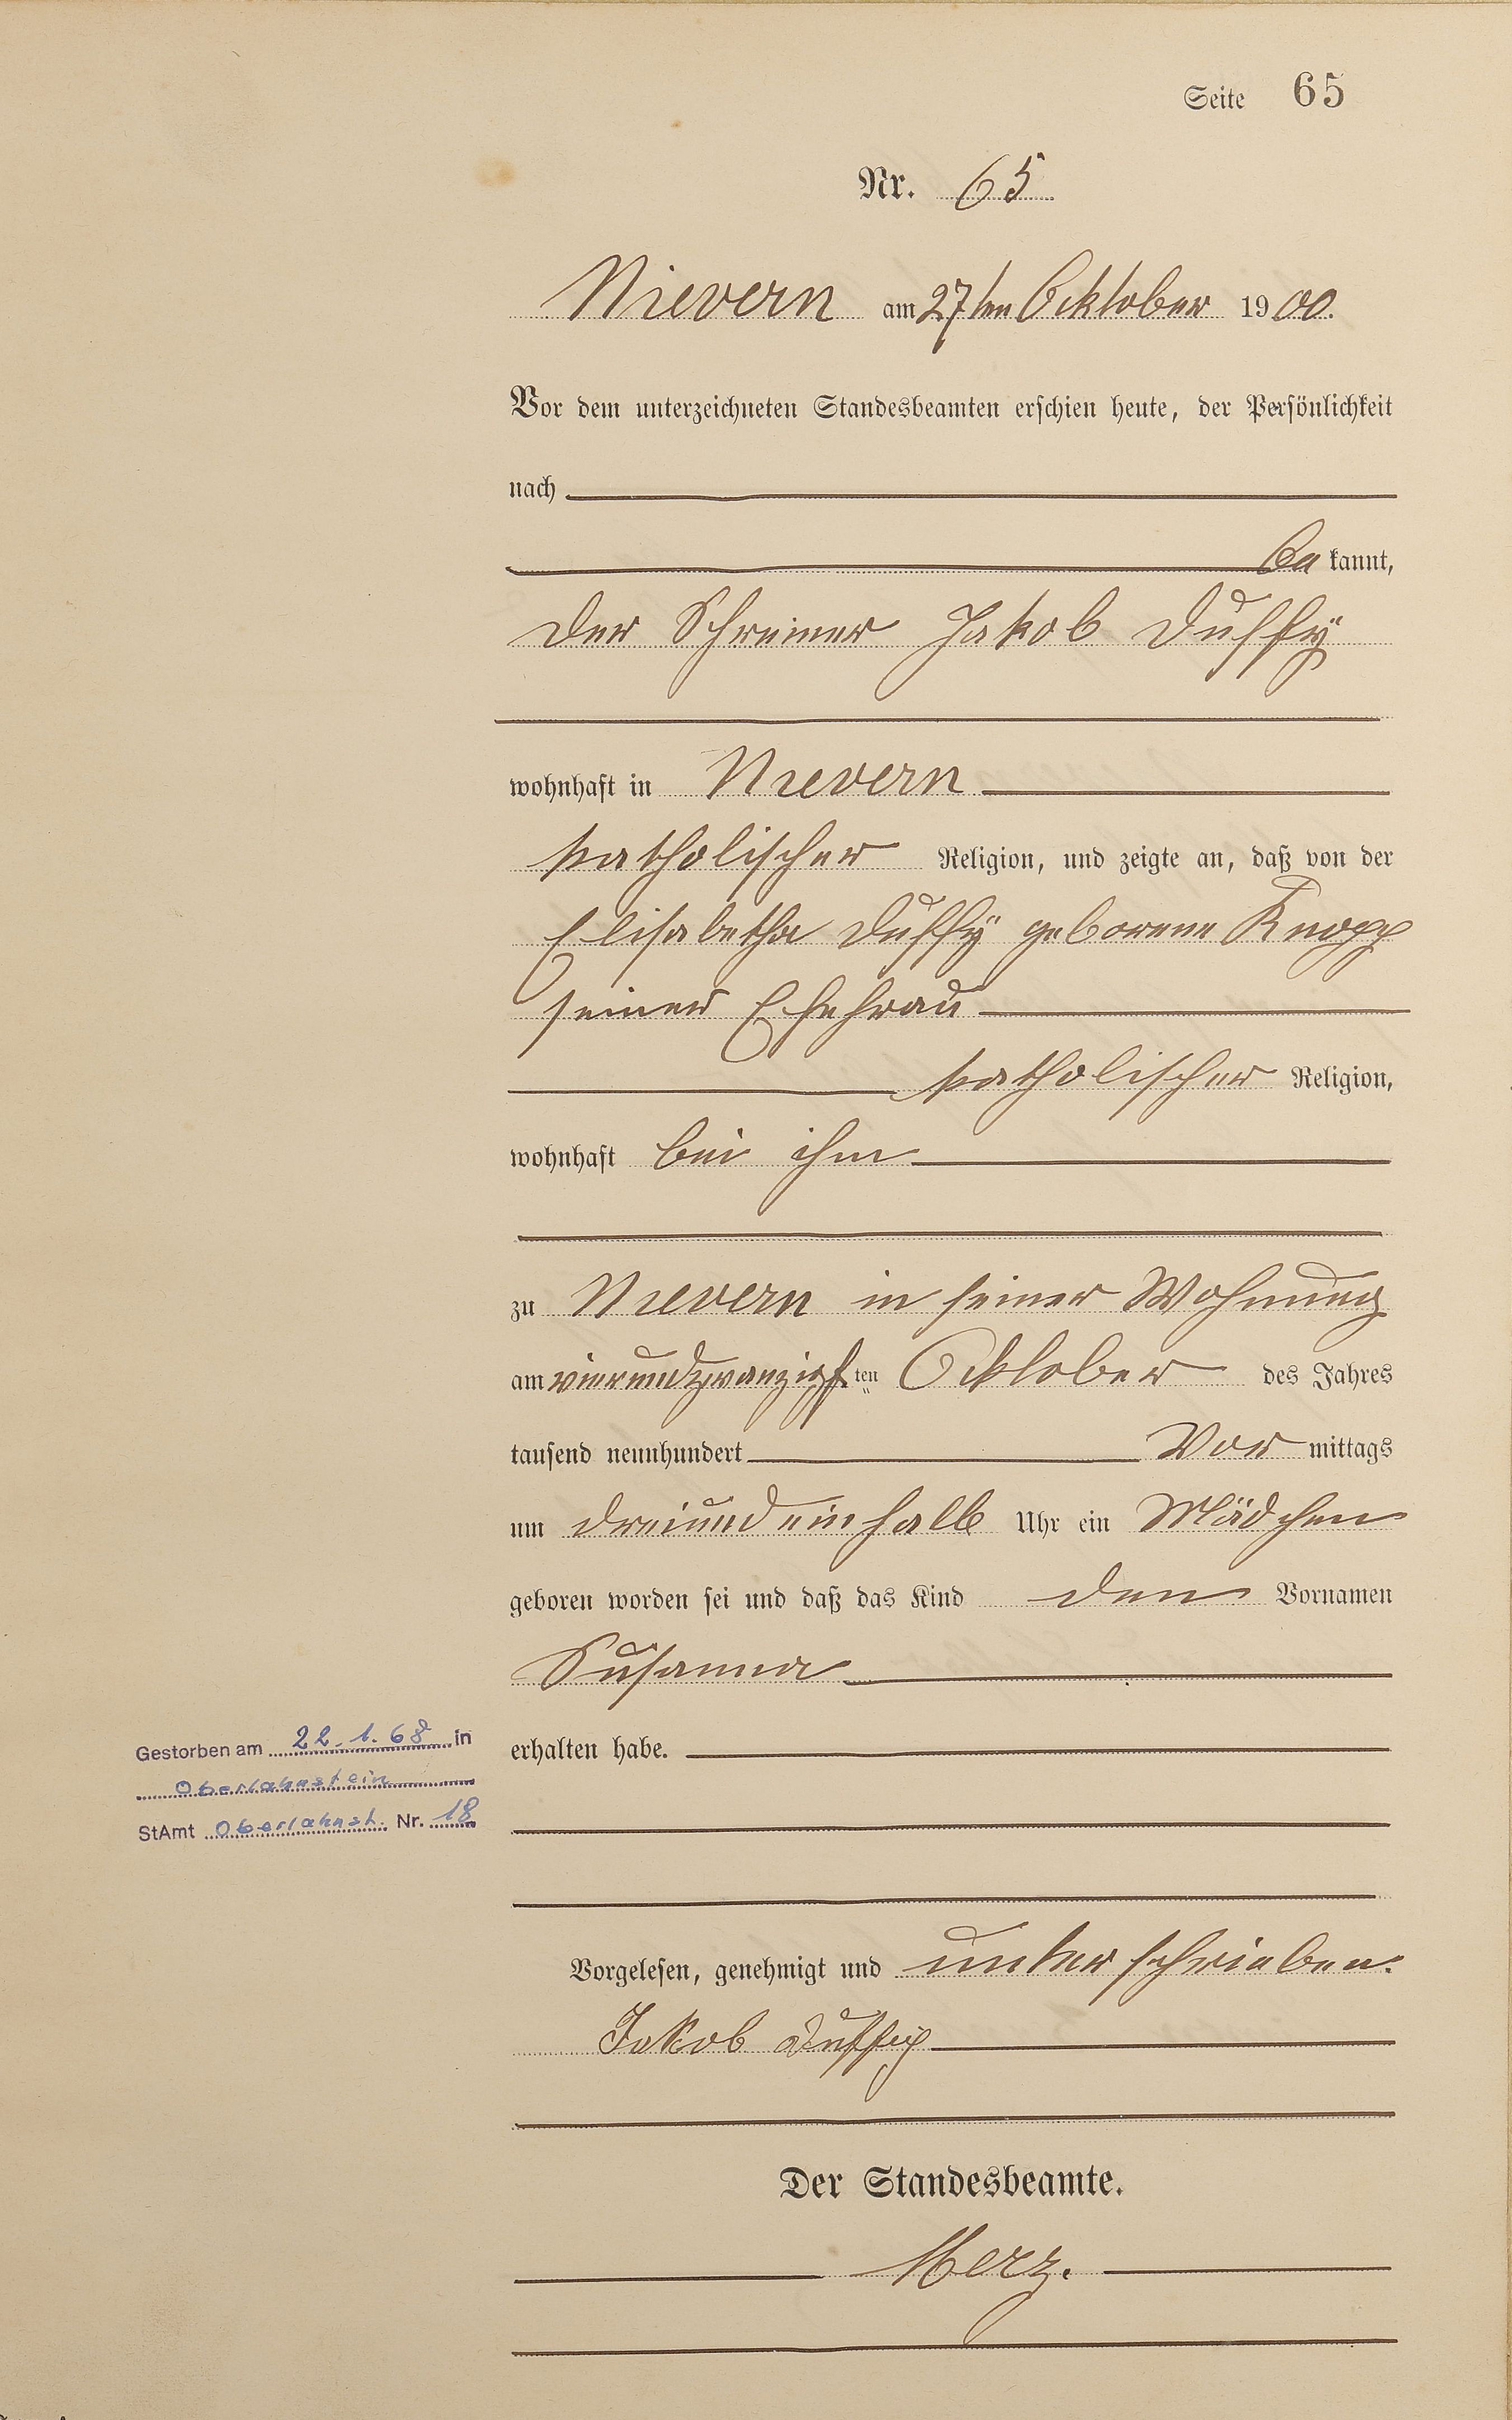 Seite 65
Nr. 65
Nievern am 27ten Ocktober 1900.
Vor dem unterzeichneten Standesbeamten erschien heute, der Persönlichkeit
nach
be kannt,
der Schreiner Jakob Duffÿ
wohnhaft in Nievern
katholischer Religion, und zeigte an, daß von der
Elisabetha Duffÿ geborene Knopp
seiner Ehefrau
katholischer Religion,
wohnhaft bei ihm
zu Nievern in seiner Wohnung
am vierundzwanzigsten Ocktober des Jahres
tausend neunhundert Vor mittags
um dreiundeinhalb Uhr ein Mädchen
geboren worden sei und daß das Kind den Vornamen
Susanna
erhalten habe.
Gestorben am 22.1.68 in
Oberlahnstein
StAmt Oberlahnst. Nr. 18
Vorgelesen, genehmigt und unterschrieben.
Jakob Duffy
Der Standesbeamte.
Merz.